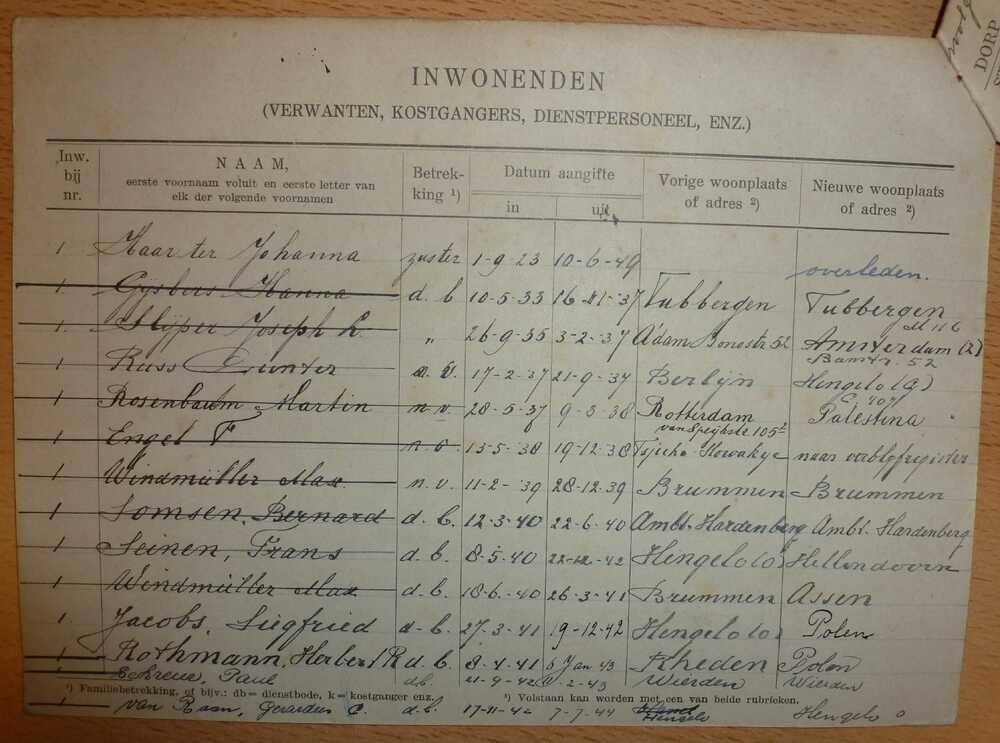 DORP
INWONENDEN
(VERWANTEN, KOSTGANGERS, DIENSTPERSONEEL, ENZ.)
Inw. bij nr. NAAM, eerste voornaam voluit en eerste letter van elk der volgende voornamen Betrekking ¹) Datum aangifte in uit Vorige woonplaats of adres ²) Nieuwe woonplaats of adres ²)
1 Haar ter Johanna zuster 1-9-23 10-6-49 overleden.
1. Gijsbers Hanna d. b 10-5-33 16-11-'37 Tubbergen Tubbergen
116
1. Slijper Joseph L. " 26-9-35 3-2-'37 A'dam 52 Amsterdam (Z)
52
1 Russ Gunter n. v. 17-2-'37 21-9-'37 Berlijn Hengelo (G)
1 Rosenbaum Martin n. v. 28-5-37 9-3-38 Rotterdam Palestina
van Speykstr. 105
1 Engel F n. v 13-5-38 19-12-38 naar verblofregister
1 Windmüller Max. n. v. 11-2-'39 28-12-39 Brummen Brummen
1 Somsen, Bernard d. b. 12-3-40 22-6-40 Ambt. Hardenberg Ambt. Hardenberg
1 Seinen, Frans d. b. 8-5-40 22-12-42 Hengelo (o) Hellendoorn
1 Windmüller Max d. b. 18-6-40 26-3-41 Brummen Assen
1 Jacobs, Siegfried d-b. 27-3-41 19-12-42 Hengelo (o) Polen
1 Rothmann, Herbert R d. b. 8-4-41 5 Jan 43 Rheden Polen
Paul db. 21-9-42 2-43 Wierden Wierden
¹) Familiebetrekking, of bijv.: db = dienstbode, k = kostganger enz. ²) Volstaan kan worden met een van beide rubrieken.
1 van Raan, Gerardus C. d.b. 17-11-42 7-7-44 Hengelo Hengelo o